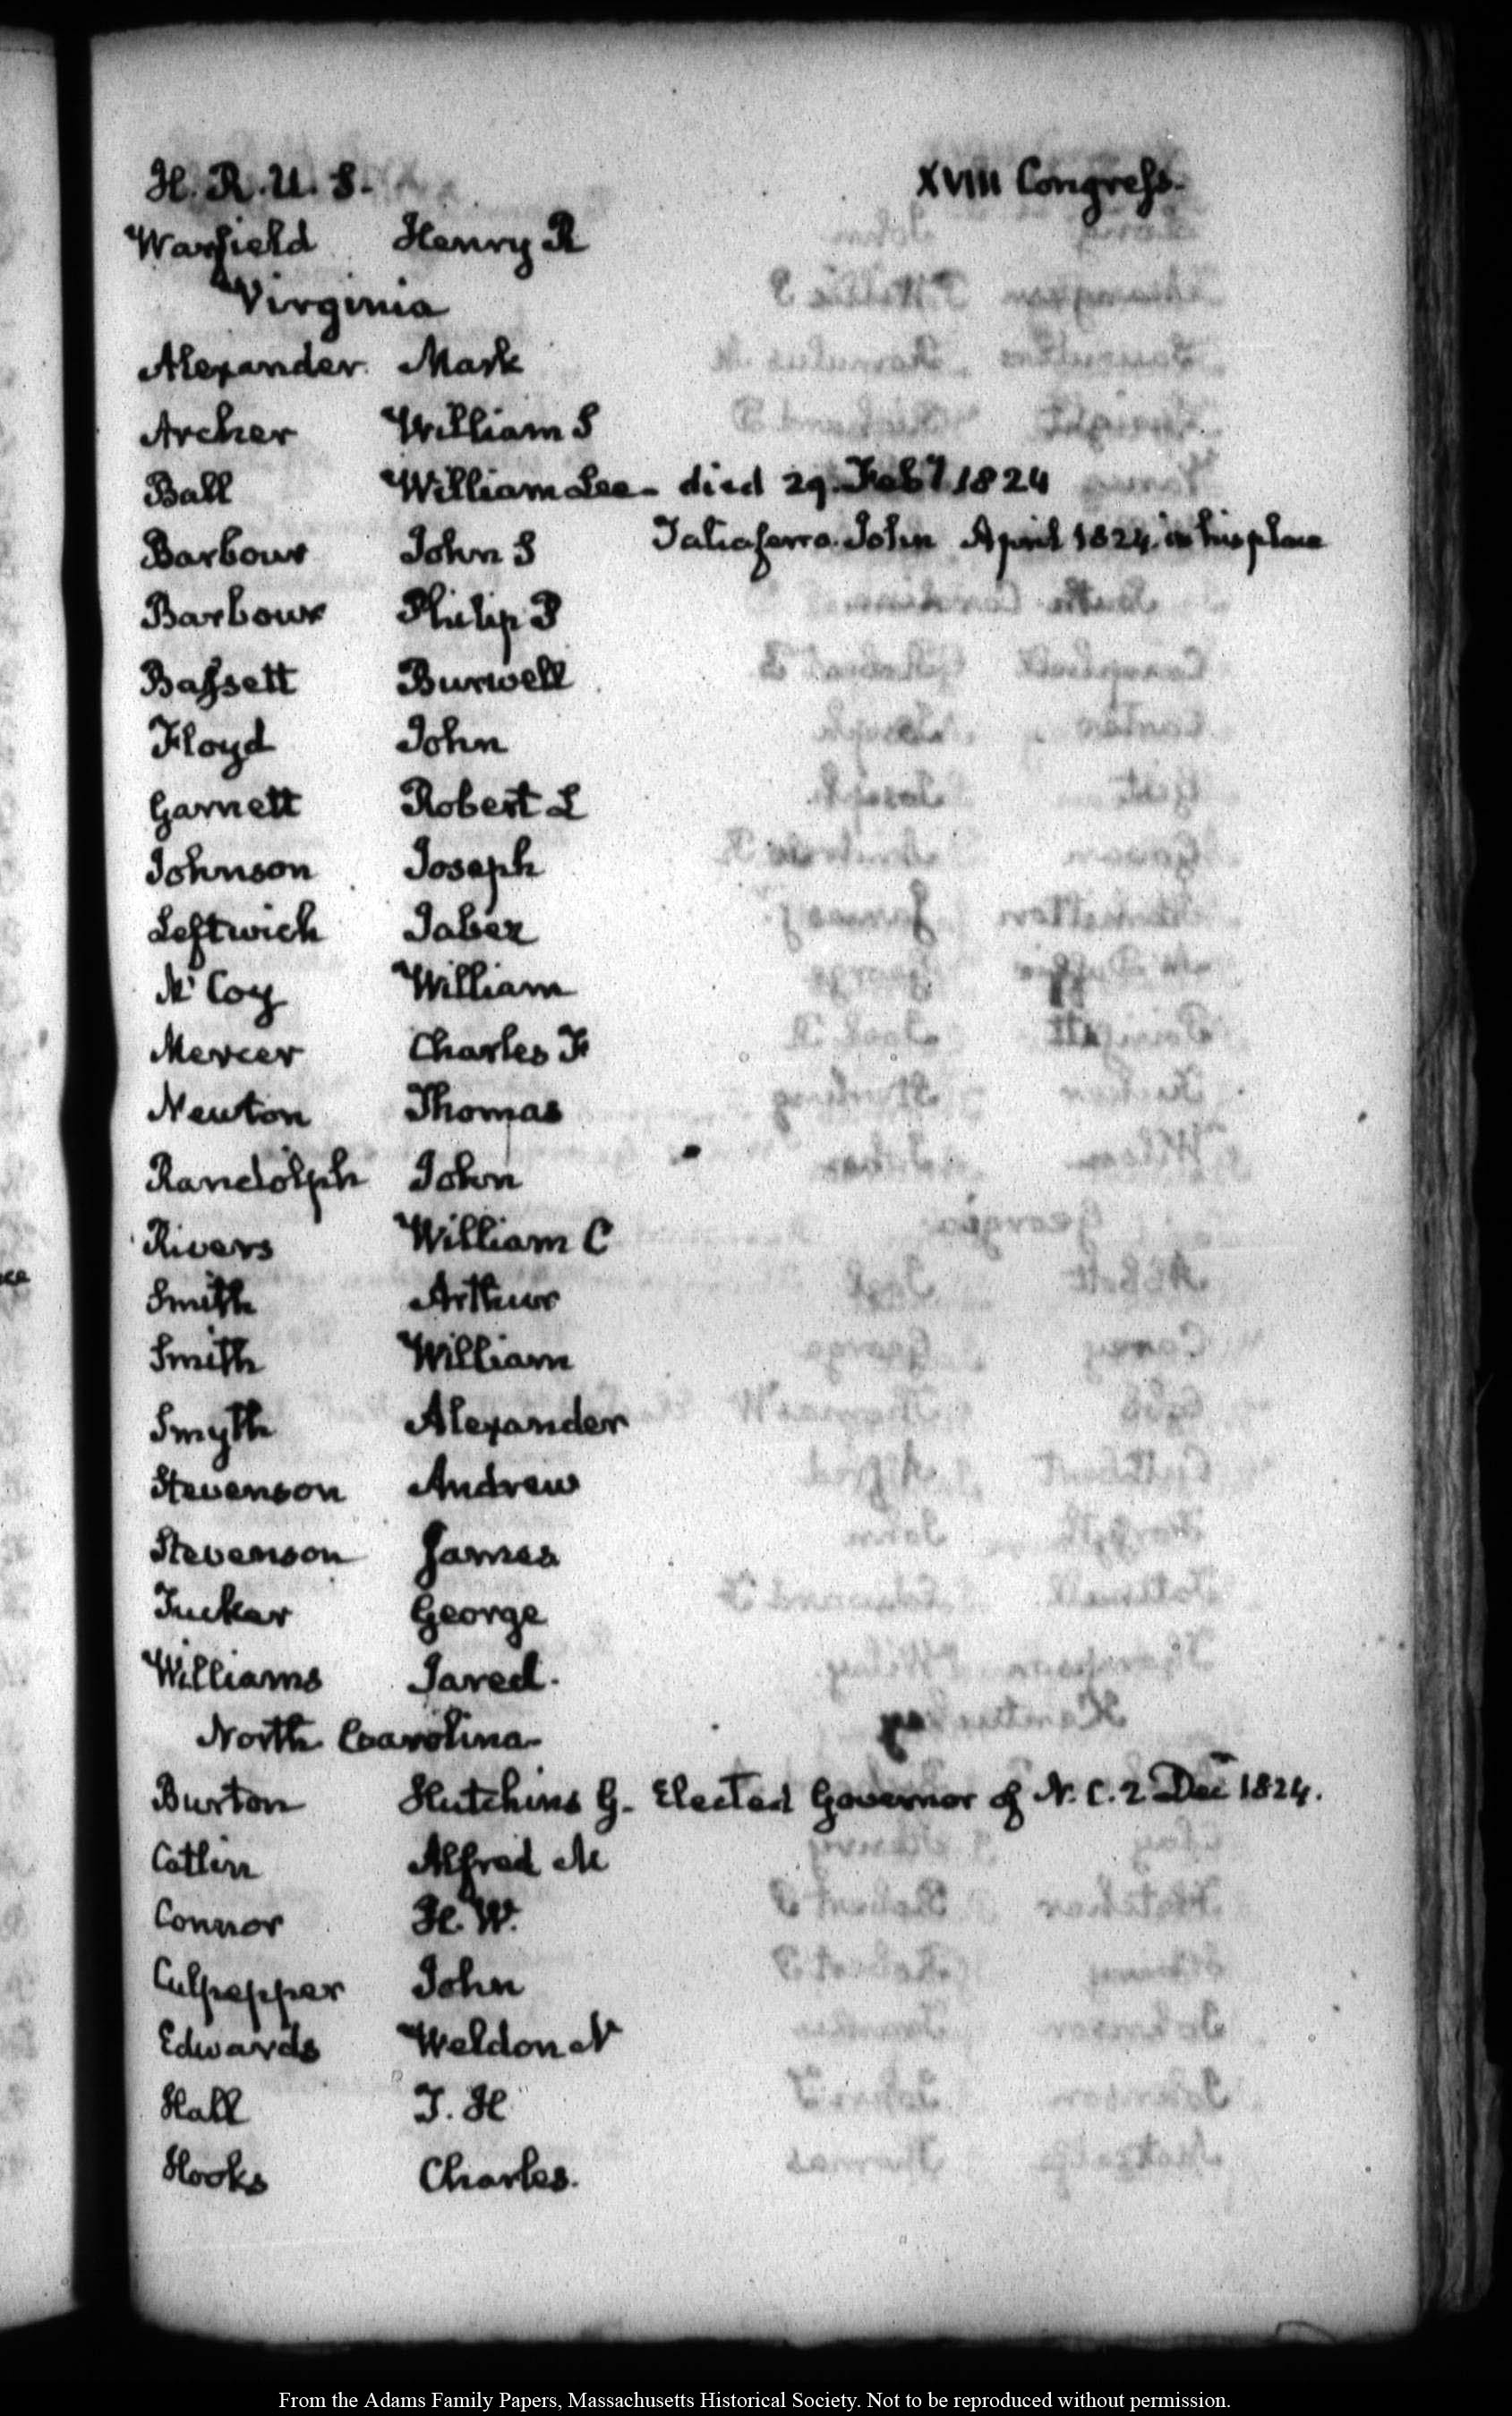 H. R. U. S. XVIII Congress.
Warfield Henry R
Virginia
Alexander Mark
Archer William S
Ball William Lee - died 29. Feby 1824
Barbour John S Taliaferro. John April 1824. in his place
Barbour Philip P
Bassett Burwell
Floyd John
Garnett Robert L
Johnson Joseph
Leftwich Jabez
McCoy William
Mercer Charles F
Newton Thomas
Randolph John
Rivers William C
Smith Arthur
Smith William
Smyth Alexander
Stevenson Andrew
Stevenson James
Tucker George
Williams Jared.
North Coarolina
Burton Hutchins G. Elected Governor of N. C. 2 Decr 1824.
Catlin Alfred M
Connor H. W.
Culpepper John
Edwards Weldon N
Hall T. H
Hooks Charles.
From the Adams Family Papers, Massachusetts Historical Society. Not to be reproduced without permission.